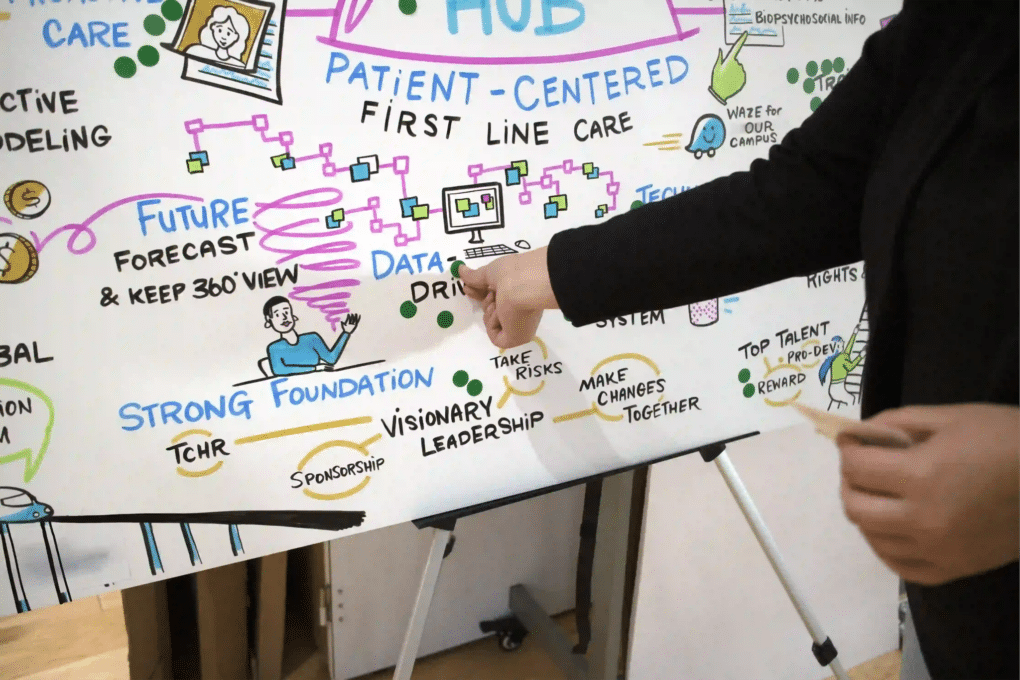 CARE
HUB
BIOPSYCHOSOCIAL INFO
PATIENT-CENTERED
FIRST LINE CARE
WAZE for
OUR
CAMPUS
FUTURE
FORECAST
& KEEP 360° VIEW
DATA-
RIGHTS
SYSTEM
STRONG FOUNDATION
TCHR
SPONSORSHIP
VISIONARY
LEADERSHIP
TAKE
RISKS
MAKE
CHANGES
TOGETHER
TOP TALENT
PRO-DEV
REWARD